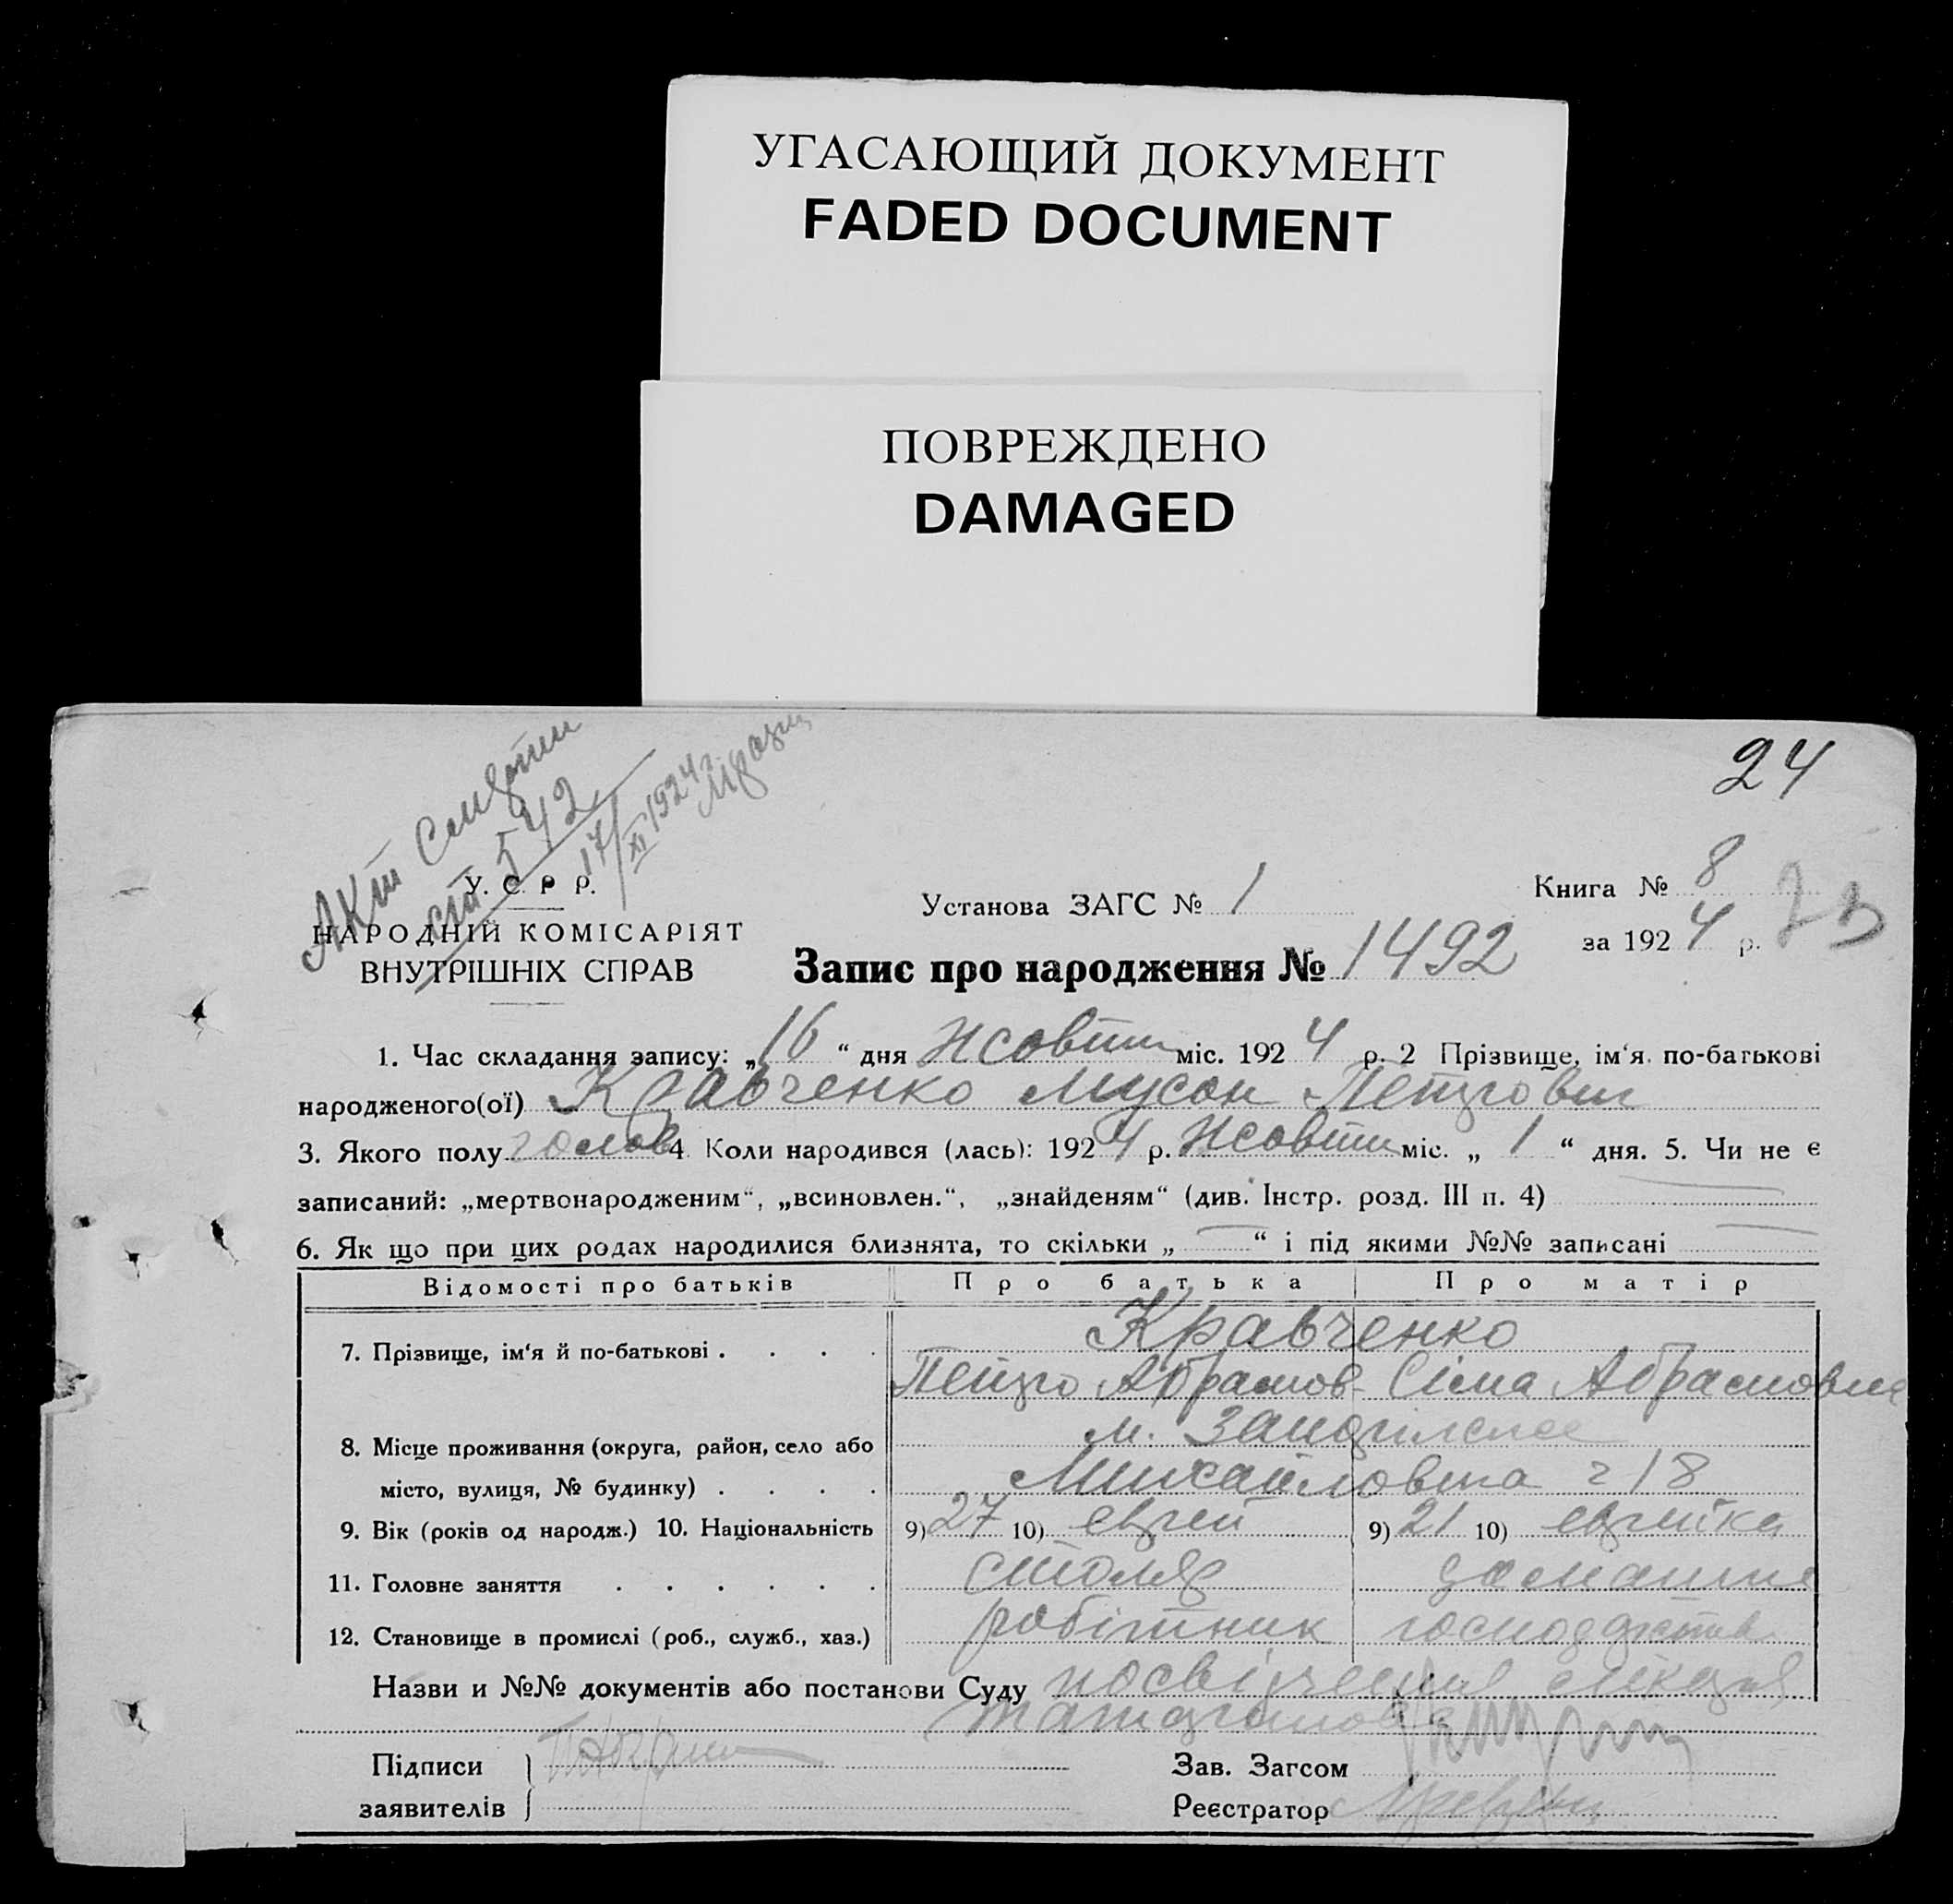 УГАСАЮЩИЙ ДОКУМЕНТ
FADED DOCUMENT
ПОВРЕЖДЕНО
DAMAGED
24
Акт смерти
542
17/XI 1924 г.
У. С. Р. Р.
НАРОДНІЙ КОМІСАРІЯТ
ВНУТРІШНІХ СПРАВ
Установа ЗАГС № 1
Книга № 8
за 1924 р.
23
Запис про народження № 1492
1. Час складання запису: „16“ дня Жовтн міс. 1924 р. 2 Прізвище, ім‘я. по-батькові
народженого(ої) Кравченко Мусон Петрович
3. Якого полу чолов 4 Коли народився (лась): 1924 р. Жовтн міс. „ 1 “ дня. 5. Чи не є
записаний: „мертвонародженим“, „всиновлен.“, „знайденям“ (див. Інстр. розд. III п. 4)
6. Як що при цих родах народилися близнята, то скільки „ — “ і під якими №№ записані —
Відомості про батьків Про батька Про матір
Кравченко
7. Прізвище, ім‘я й по-батькові . . . . Петро Абрамов Сіма Абрамовна
8. Місце проживання (округа, район, село або м.
місто, вулиця, № будинку) . . . . Михайловська 18
9. Вік (років од народж.) 10. Національність 9) 27 10) еврей 9) 21 10) еврейка
11. Головне заняття . . . . . . столяр домашнє
12. Становище в промислі (роб., служб., хаз.) робітник господарство
Назви и №№ документів або постанови Суду посвідчення лікаря
Підписи
заявителів
Зав. Загсом
Реєстратор